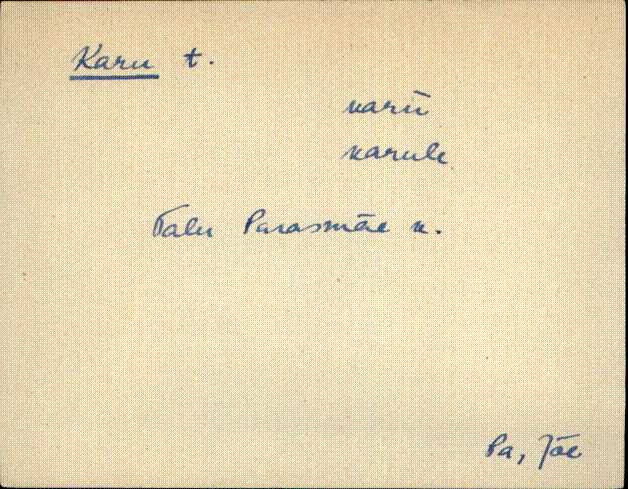 Karu t.
karū
karule
Talu Parasmäe k.
Pa, Jõe